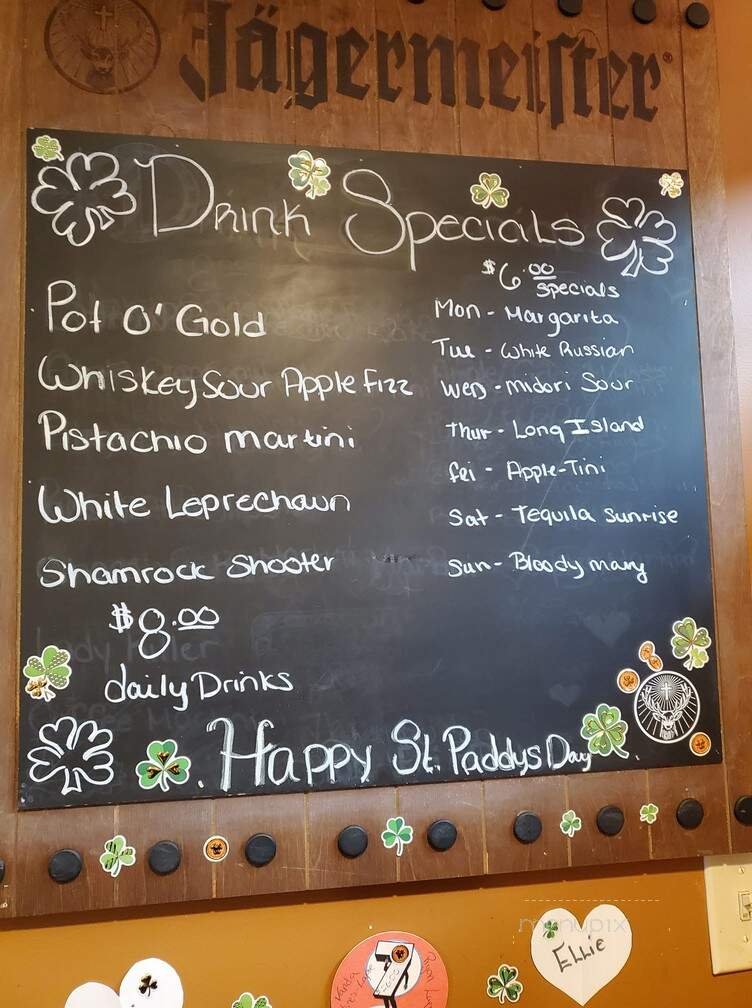 Jägermeister
Drink Specials
Pot O' Gold
Whiskey Sour Apple Fizz
Pistachio martini
White Leprechaun
Shamrock Shooter
$8.00
daily Drinks
$6.00
Specials
Mon - Margarita
Tue - White Russian
Wed - midori Sour
Thur - Long Island
fri - Apple-Tini
Sat - Tequila Sunrise
Sun - Bloody mary
Happy St. Paddys Day
menupix
Ellie